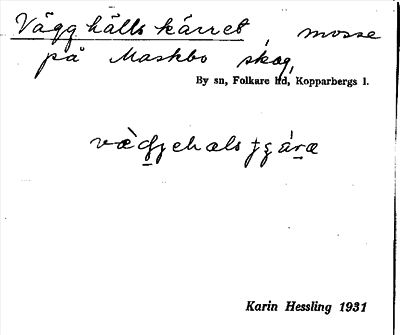 Vägghällskärret, mosse
på Maskbo skog,
By sn, Folkare hd, Kopparbergs l.
Karin Hessling 1931